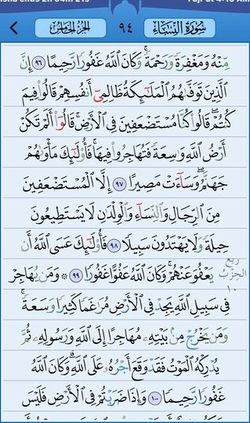 الجزء الخامس ٩٤ سورة النساء
مِّنْهُ وَمَغْفِرَةً وَرَحْمَةً ۚ وَكَانَ ٱللَّهُ غَفُورًا رَّحِيمًا ٩٦ إِنَّ
ٱلَّذِينَ تَوَفَّىٰهُمُ ٱلْمَلَـٰٓئِكَةُ ظَالِمِىٓ أَنفُسِهِمْ قَالُوا۟ فِيمَ
كُنتُمْ ۖ قَالُوا۟ كُنَّا مُسْتَضْعَفِينَ فِى ٱلْأَرْضِ ۚ قَالُوٓا۟ أَلَمْ تَكُنْ
أَرْضُ ٱللَّهِ وَٰسِعَةً فَتُهَاجِرُوا۟ فِيهَا ۚ فَأُو۟لَـٰٓئِكَ مَأْوَىٰهُمْ
جَهَنَّمُ ۖ وَسَآءَتْ مَصِيرًا ٩٧ إِلَّا ٱلْمُسْتَضْعَفِينَ
مِنَ ٱلرِّجَالِ وَٱلنِّسَآءِ وَٱلْوِلْدَٰنِ لَا يَسْتَطِيعُونَ
حِيلَةً وَلَا يَهْتَدُونَ سَبِيلًا ٩٨ فَأُو۟لَـٰٓئِكَ عَسَى ٱللَّهُ أَن
يَعْفُوَ عَنْهُمْ ۚ وَكَانَ ٱللَّهُ عَفُوًّا غَفُورًا ٩٩ ۞ وَمَن يُهَاجِرْ
ربع
الحزب
١٠
فِى سَبِيلِ ٱللَّهِ يَجِدْ فِى ٱلْأَرْضِ مُرَٰغَمًا كَثِيرًا وَسَعَةً ۚ
وَمَن يَخْرُجْ مِنۢ بَيْتِهِۦ مُهَاجِرًا إِلَى ٱللَّهِ وَرَسُولِهِۦ ثُمَّ
يُدْرِكْهُ ٱلْمَوْتُ فَقَدْ وَقَعَ أَجْرُهُۥ عَلَى ٱللَّهِ ۗ وَكَانَ ٱللَّهُ
غَفُورًا رَّحِيمًا ١٠٠ وَإِذَا ضَرَبْتُمْ فِى ٱلْأَرْضِ فَلَيْسَ